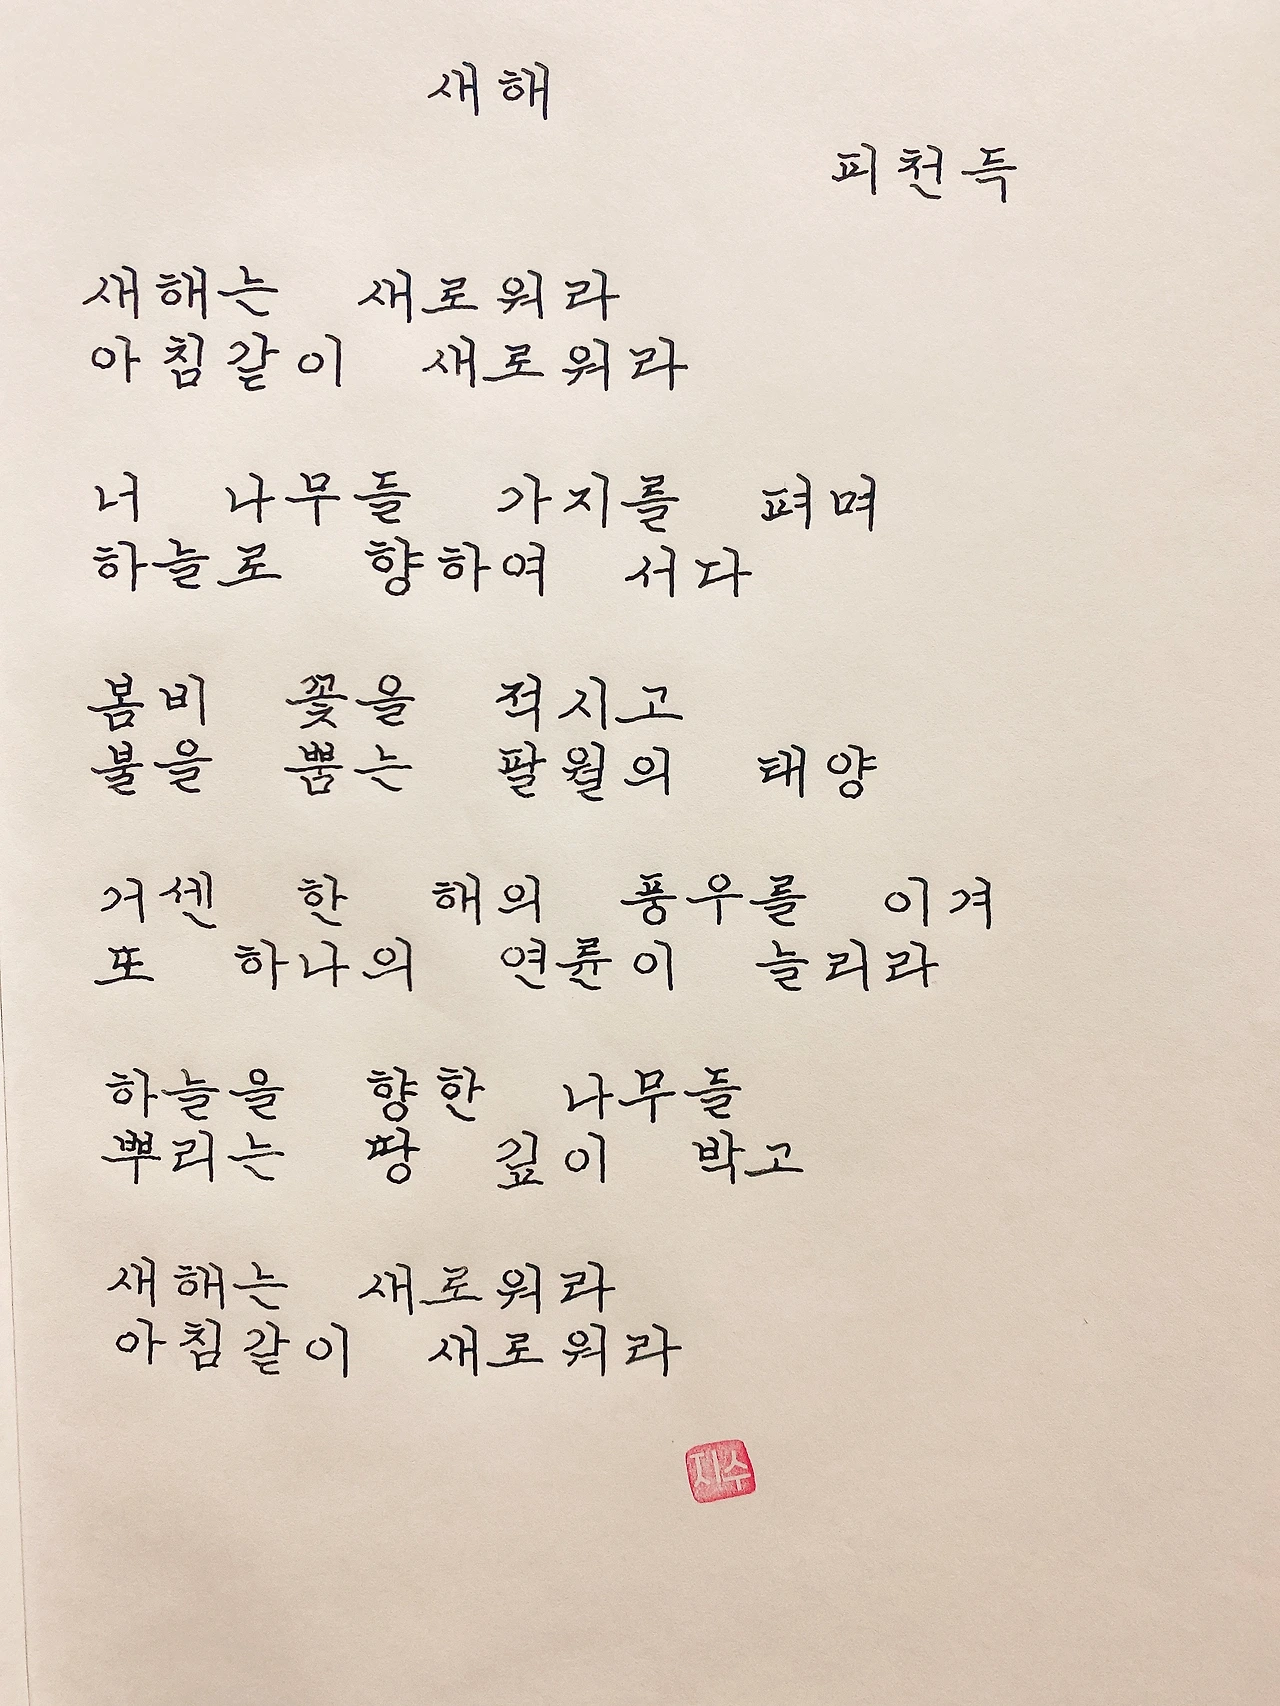 새해
피천득
새해는 새로워라
아침같이 새로워라
너 나무들 가지를 펴며
하늘로 향하여 서다
봄비 꽃을 적시고
불을 뿜는 팔월의 태양
거센 한 해의 풍우를 이겨
또 하나의 연륜이 늘리라
하늘을 향한 나무들
뿌리는 땅 깊이 박고
새해는 새로워라
아침같이 새로워라
지수